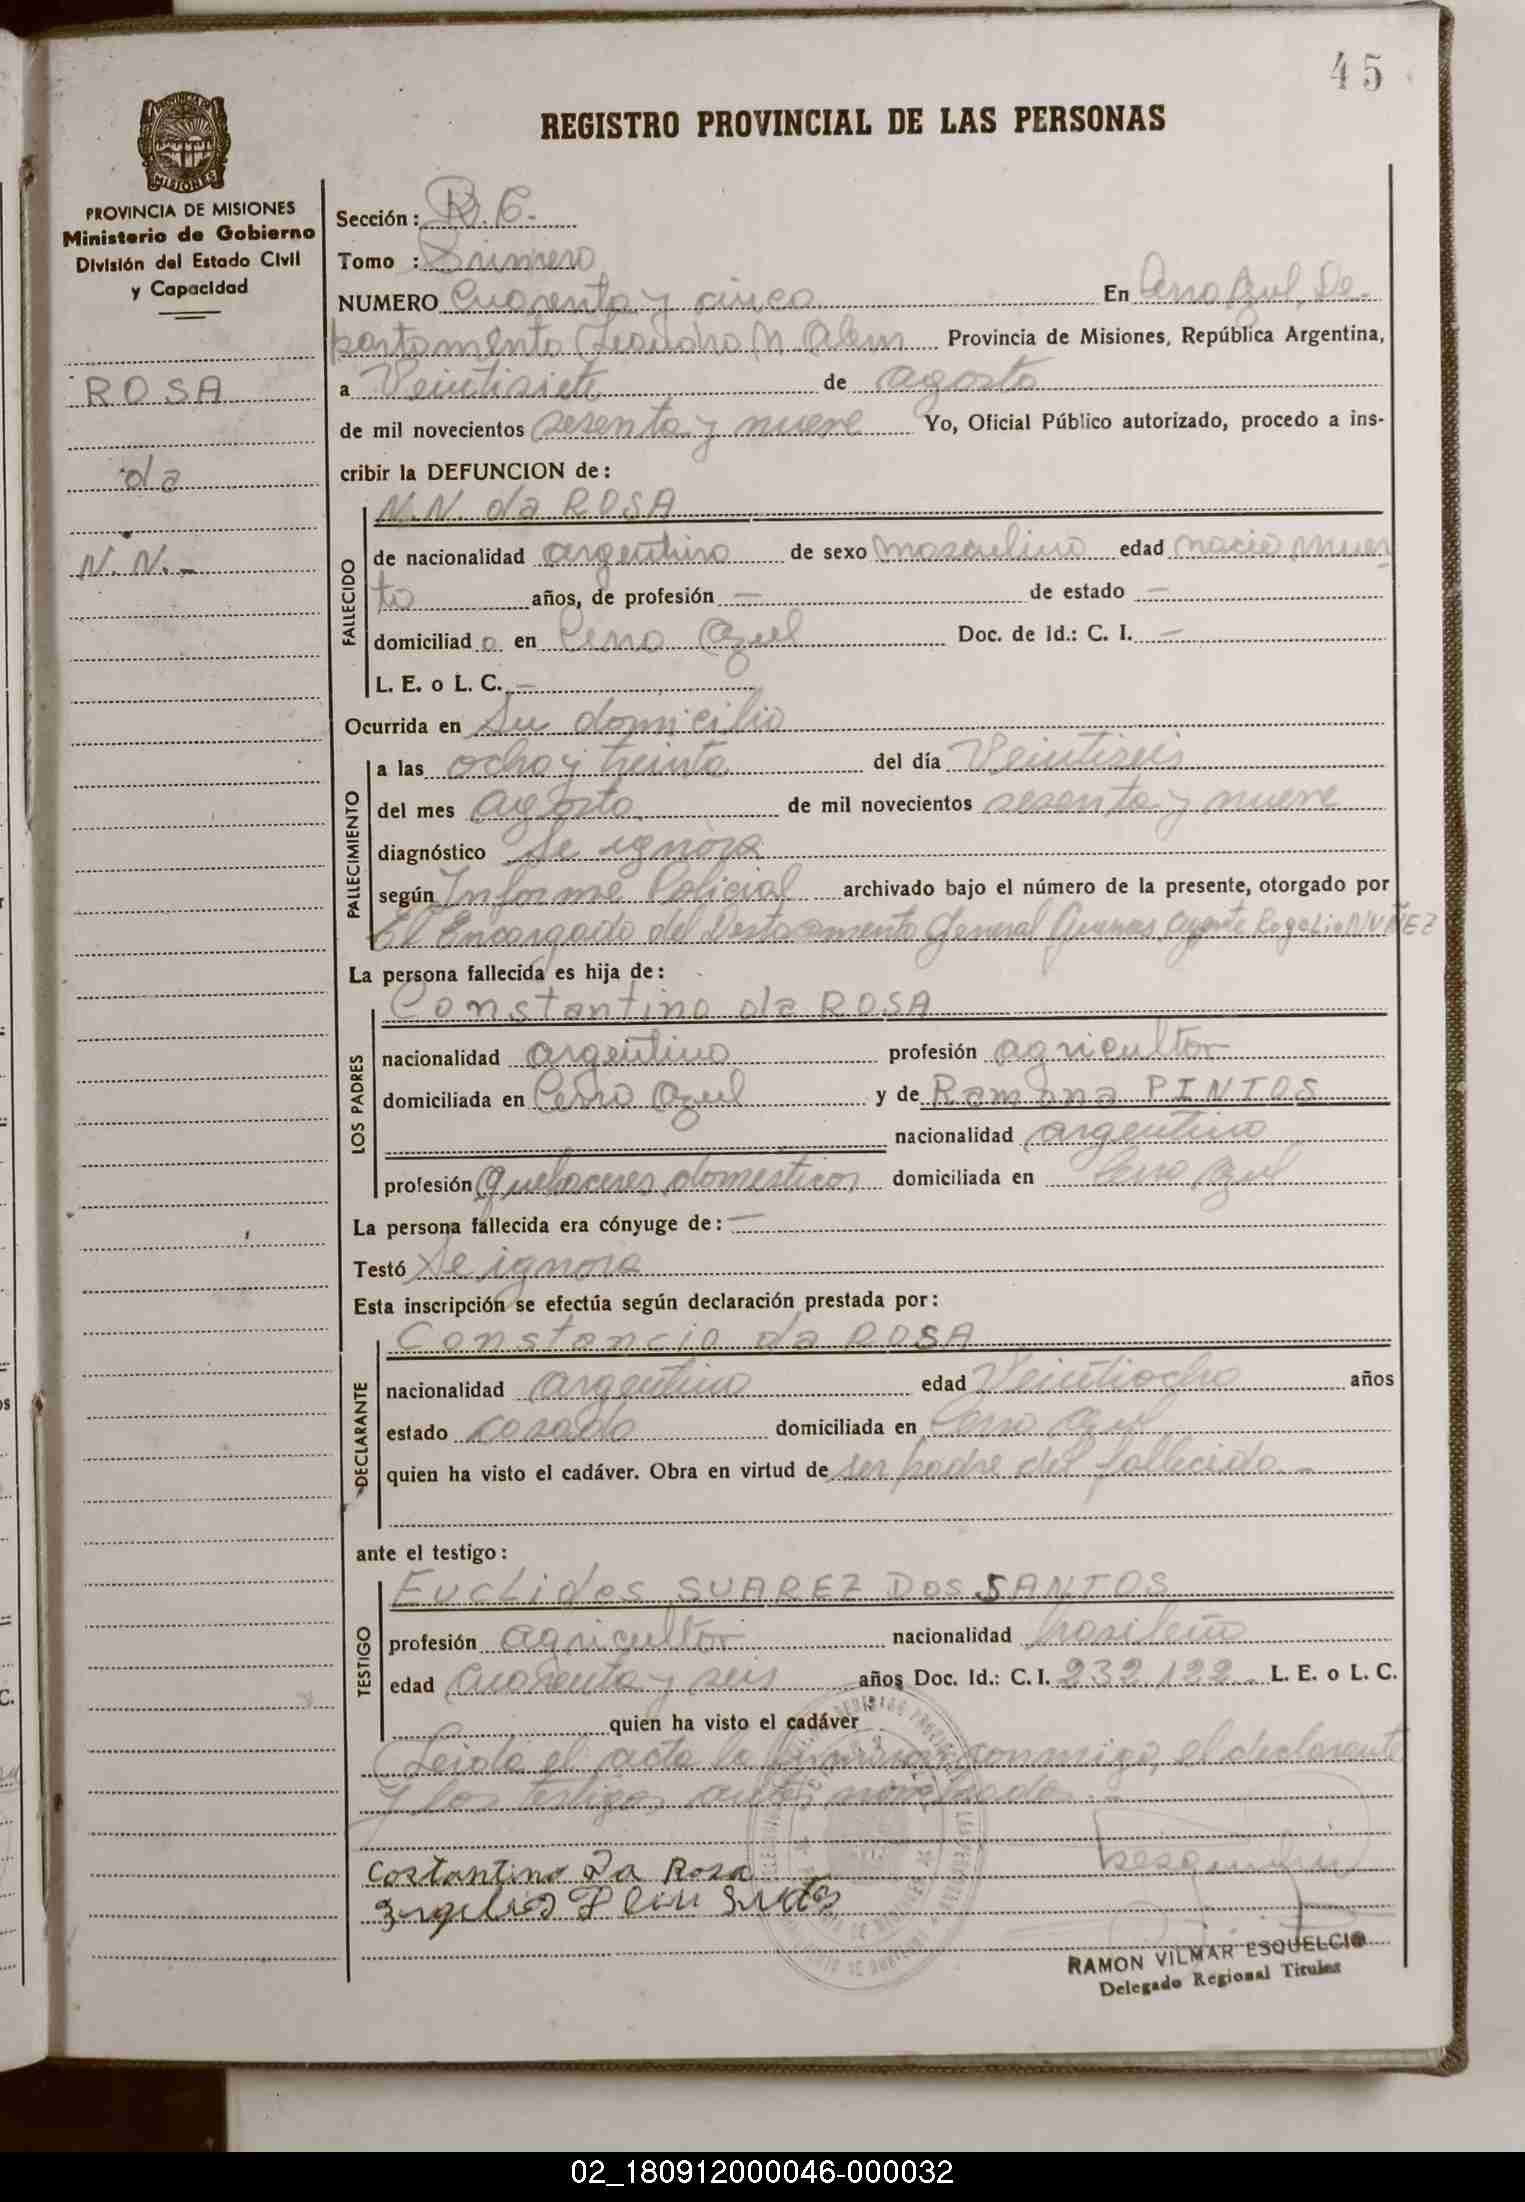 45
REGISTRO PROVINCIAL DE LAS PERSONAS
PROVINCIA DE MISIONES
Ministerio de Gobierno
División del Estado Civil
y Capacidad
ROSA
da
N. N. -
Sección:
Tomo : Primero
NUMERO Cuarenta y cinco En Cerro Azul, De-
partamento Leandro N Alem Provincia de Misiones, República Argentina,
a Veintisiete de agosto
de mil novecientos sesenta y nueve Yo, Oficial Público autorizado, procedo a ins-
cribir la DEFUNCION de:
N.N. da ROSA
FALLECIDO
de nacionalidad argentino de sexo masculino edad nació muer-
to años, de profesión — de estado —
domiciliad o en Cerro Azul Doc. de Id.: C. I. —
L. E. o L. C. —
Ocurrida en Su domicilio
FALLECIMIENTO
a las ocho y treinta del día Veintiseis
del mes agosto de mil novecientos sesenta y nueve
diagnóstico Se ignora
según Informe Policial archivado bajo el número de la presente, otorgado por
El Encargado del Destacamento General Guemes, agente Rogelio NUÑEZ
La persona fallecida es hija de:
Constantino da ROSA
LOS PADRES
nacionalidad argentino profesión agricultor
domiciliada en Cerro Azul y de Ramona PINTOS
nacionalidad argentina
profesión Quehaceres domesticos domiciliada en Cerro Azul
La persona fallecida era cónyuge de: —
Testó Se ignora
Esta inscripción se efectúa según declaración prestada por:
Constancio da ROSA
DECLARANTE
nacionalidad argentino edad Veintiocho años
estado casado domiciliada en Cerro Azul
quien ha visto el cadáver. Obra en virtud de ser padre del fallecido. -
ante el testigo:
Euclides SUAREZ DOS SANTOS
TESTIGO
profesión agricultor nacionalidad brasileño
edad cuarenta y seis años Doc. Id.: C. I. 232.122.- L. E. o L. C.
quien ha visto el cadáver
Leida el acta la firman conmigo, el declarante
y los testigos antes nombrados. -
Costantino Da Rosa
RAMON VILMAR ESQUELCIO
Delegado Regional Titular
02_180912000046-000032